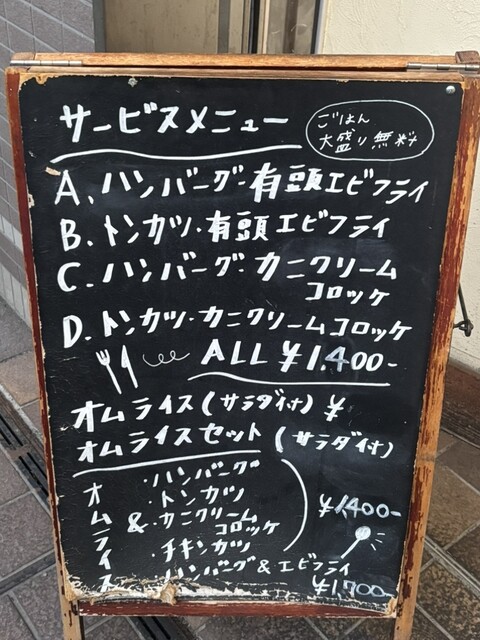 サービスメニュー
ごはん
大盛り無料
A. ハンバーグ・有頭エビフライ
B. トンカツ・有頭エビフライ
C. ハンバーグ・カニクリーム
コロッケ
D. トンカツ・カニクリームコロッケ
ALL ¥1,400-
オムライス(サラダ付) ¥
オムライスセット (サラダ付)
オムライス &
・ハンバーグ
・トンカツ
・カニクリーム
コロッケ
・チキンカツ
¥1400-
・ハンバーグ & エビフライ
¥1,700-